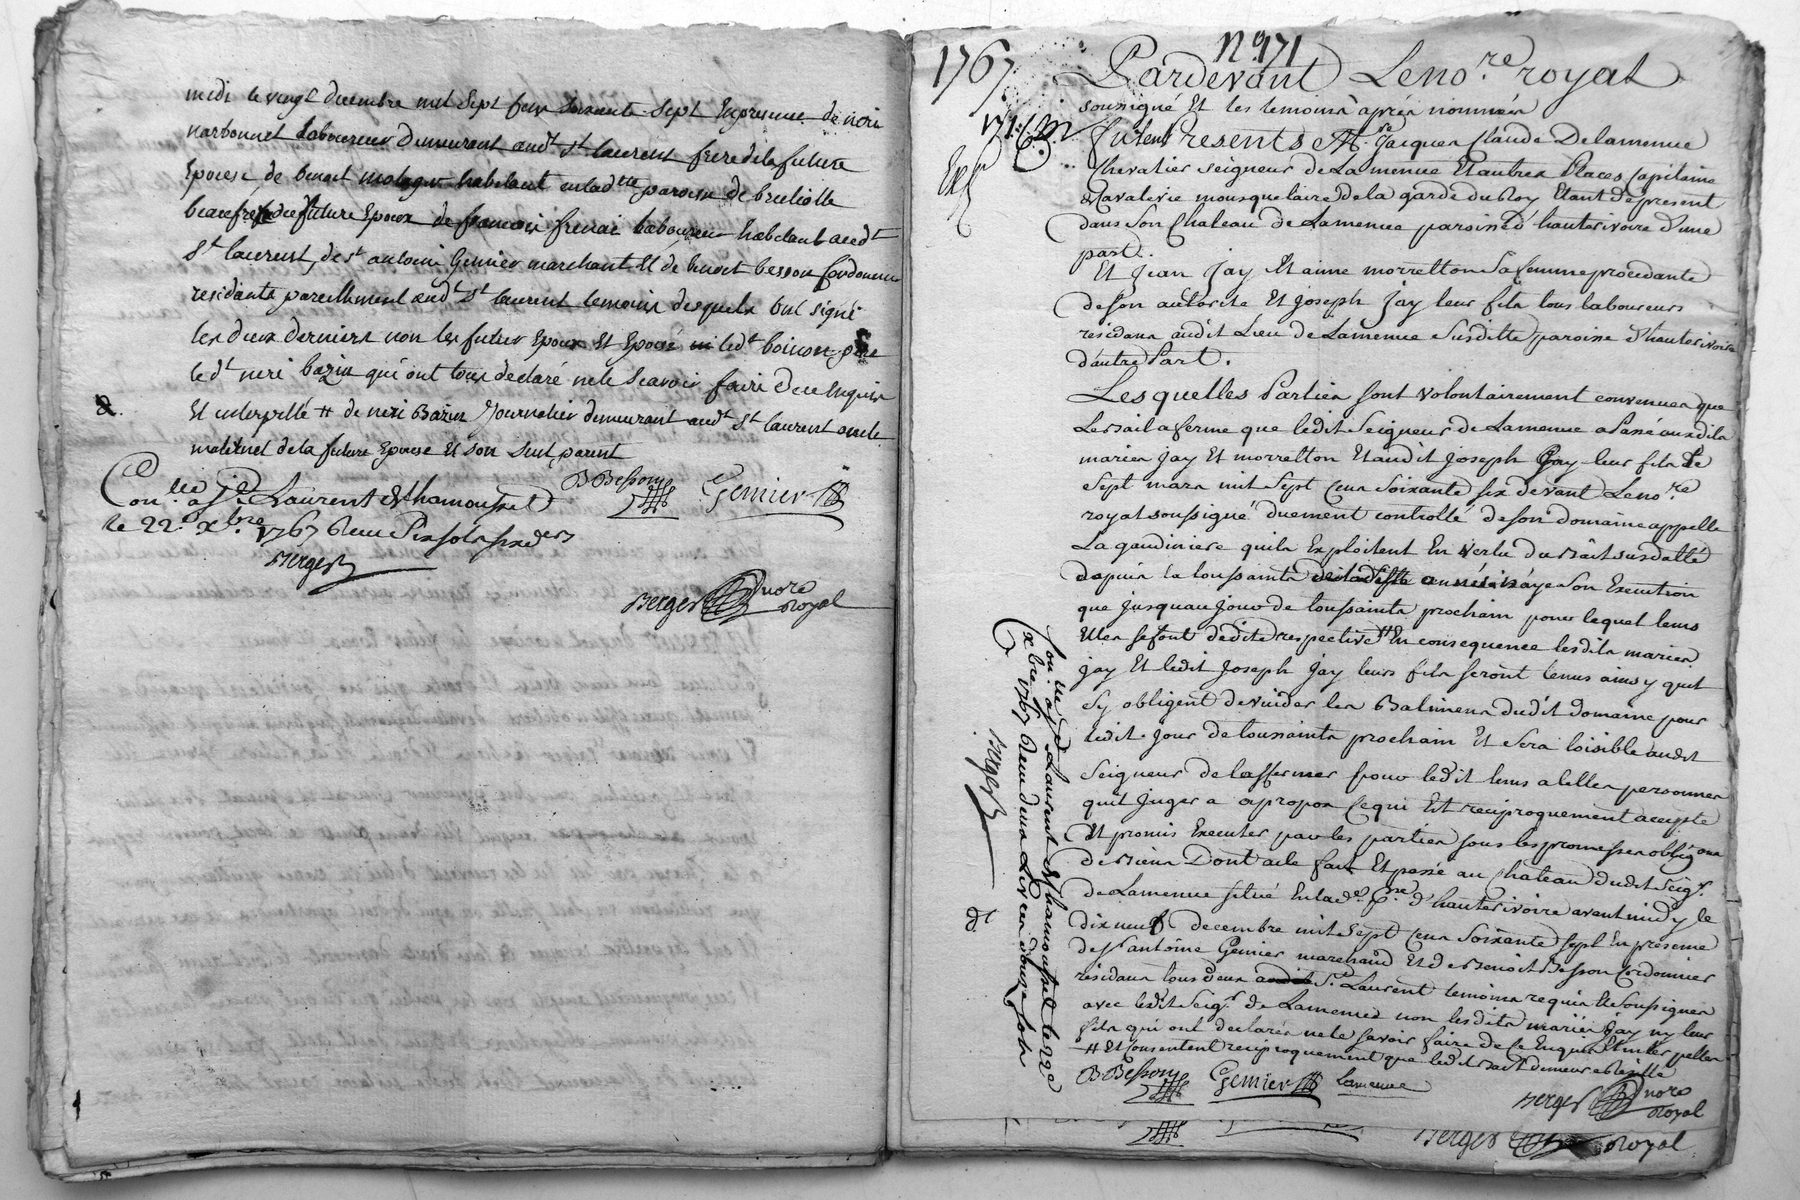 midi le vingt decembre mil sept cens soixante sept En presence de neri
narbonnet laboureur demeurant aud.t S.t laurent frere de la future
Epouse de benoit habitant en lad.tte paroisse de
beaufrere du future Epoux de francois laboureur habitant aud.t
S.t laurent, de s.r antoine Gemier marchand Et de benoit besson Cordonnier
residants pareillement aud.t S.t laurent temoins desquels ont signé
les deux derniers non les futurs Epoux Et Epouse ni led.t
led.t neri bazin qui ont tous declaré ne le scavoir faire de ce Enquis
Et interpellé # de neri Bazin Journalier demeurant aud.t S.t laurent oncle
maternel de la future Epouse Et son seul parent
B Besson Gemier
Con.lle a S.t Laurent de Chamousset
le 22.e X.bre 1767 Reçu Six sols six d.ers
Berger
Berger no.re Royal
1767
N.o 171
Pardevant Le no.re royal
soussigné Et les temoins apres nommés
171.
Exp.
furent Presents M.re Jacques Claude De Lamenue
Chevalier seigneur de La menue Et autres Places Capitaine
de Cavalerie mousquetaire de la garde du Roy Etant de present
dans son Chateau de Lamenue paroisse d'hauterivoire d'une
part.
Et Jean Jay Et aime morretton sa femme procedante
de son autorité Et Joseph Jay leur fils tous laboureurs
residans audit Lieu de Lamenue susditte paroisse d'hauterivoire
d'autre Part.
Lesquelles Parties sont volontairement convenues que
Le Bail a ferme que ledit Seigneur de Lamenue a Passé auxdits
maries Jay Et morretton Et audit Joseph Jay leur fils Le
sept mars mil sept Cens soixante six devant Le no.re
royal soussigné duement controllé de son domaine appellé
La gaudiniere qu'ils Exploitent En vertu du Bait susdatté
depuis la toussaints n'aye son Execution
que jusqu'au jour de toussaints prochain pour lequel tems
Elles se font dedite respective # En consequence lesdits maries
jay Et ledit Joseph Jay leurs fils seront tenus ainsy quil
sy obligent de vuider les Batimens dudit domaine pour
ledit jour de toussaints prochain Et sera loisible audit
Seigneur de laffermer pour ledit tems a telles personnes
quil jugera apropos Ce qui Est reciproquement accepté
Et promis Executer par les parties sous les promesses oblig.ons
de Biens Dont acte fait Et passé au Chateau dudit Seig.r
de Lamenue situé En lad.e P.sse d'hauterivoire avant midy le
dix neuf decembre mil sept Cens soixante sept En presence
de s.r antoine Gemier marchand Et de Benoit Besson Cordonnier
residans tous deux S.t Laurent temoins requis Et soussignés
avec ledit Seig.r de Lamenue non lesdits maries Jay ny leur
fils qui ont declarés ne le savoir faire de ce Enquis Et interpellés
# Et Consentent reciproquement que ledit Bait demeure Resillé
B. Besson Gemier Lamenue
Berger no.re Royal
Con.lle a S.t Laurent de Chamousset le 22.e
X.bre 1767 Reçu deux Livres douze sols
Berger
Berger Royal